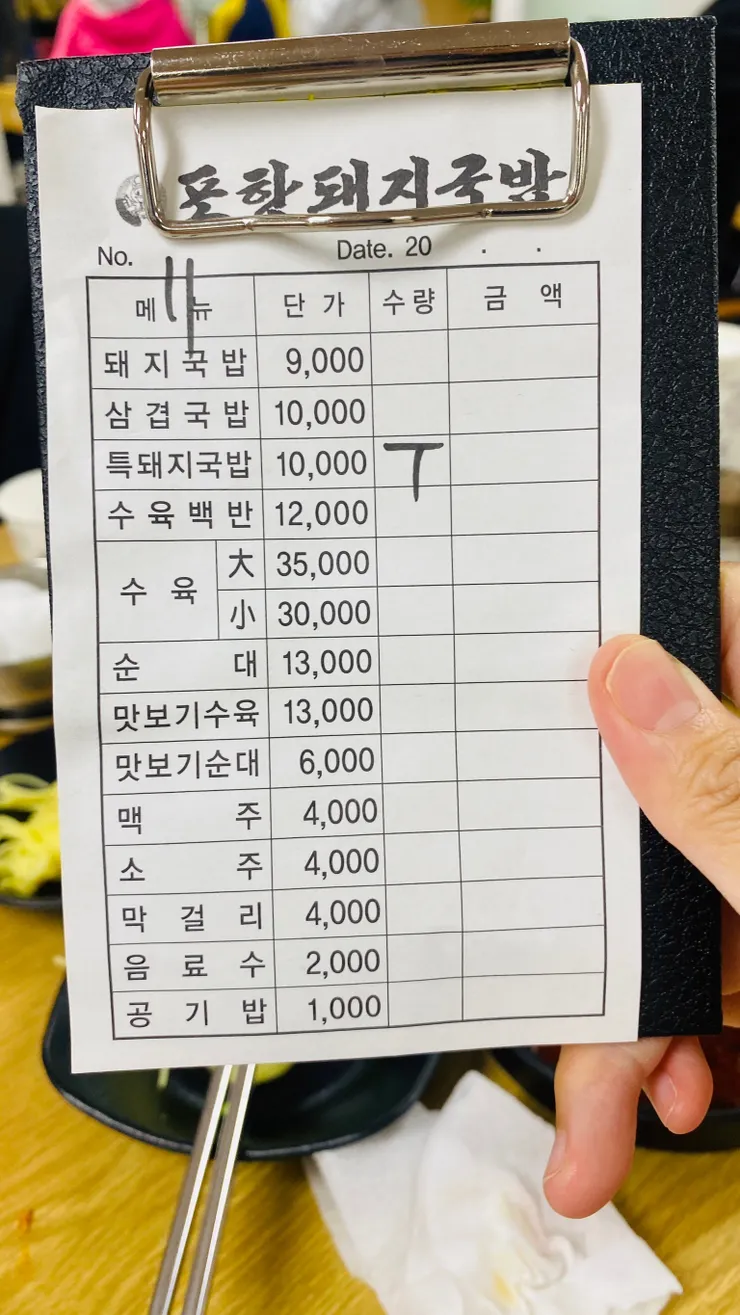 포항돼지국밥
No. 11 Date. 20 . .
메뉴 단가 수량 금액
돼지국밥 9,000
삼겹국밥 10,000
특돼지국밥 10,000 ㅜ
수육백반 12,000
수육 大 35,000
小 30,000
순대 13,000
맛보기수육 13,000
맛보기순대 6,000
맥주 4,000
소주 4,000
막걸리 4,000
음료수 2,000
공기밥 1,000